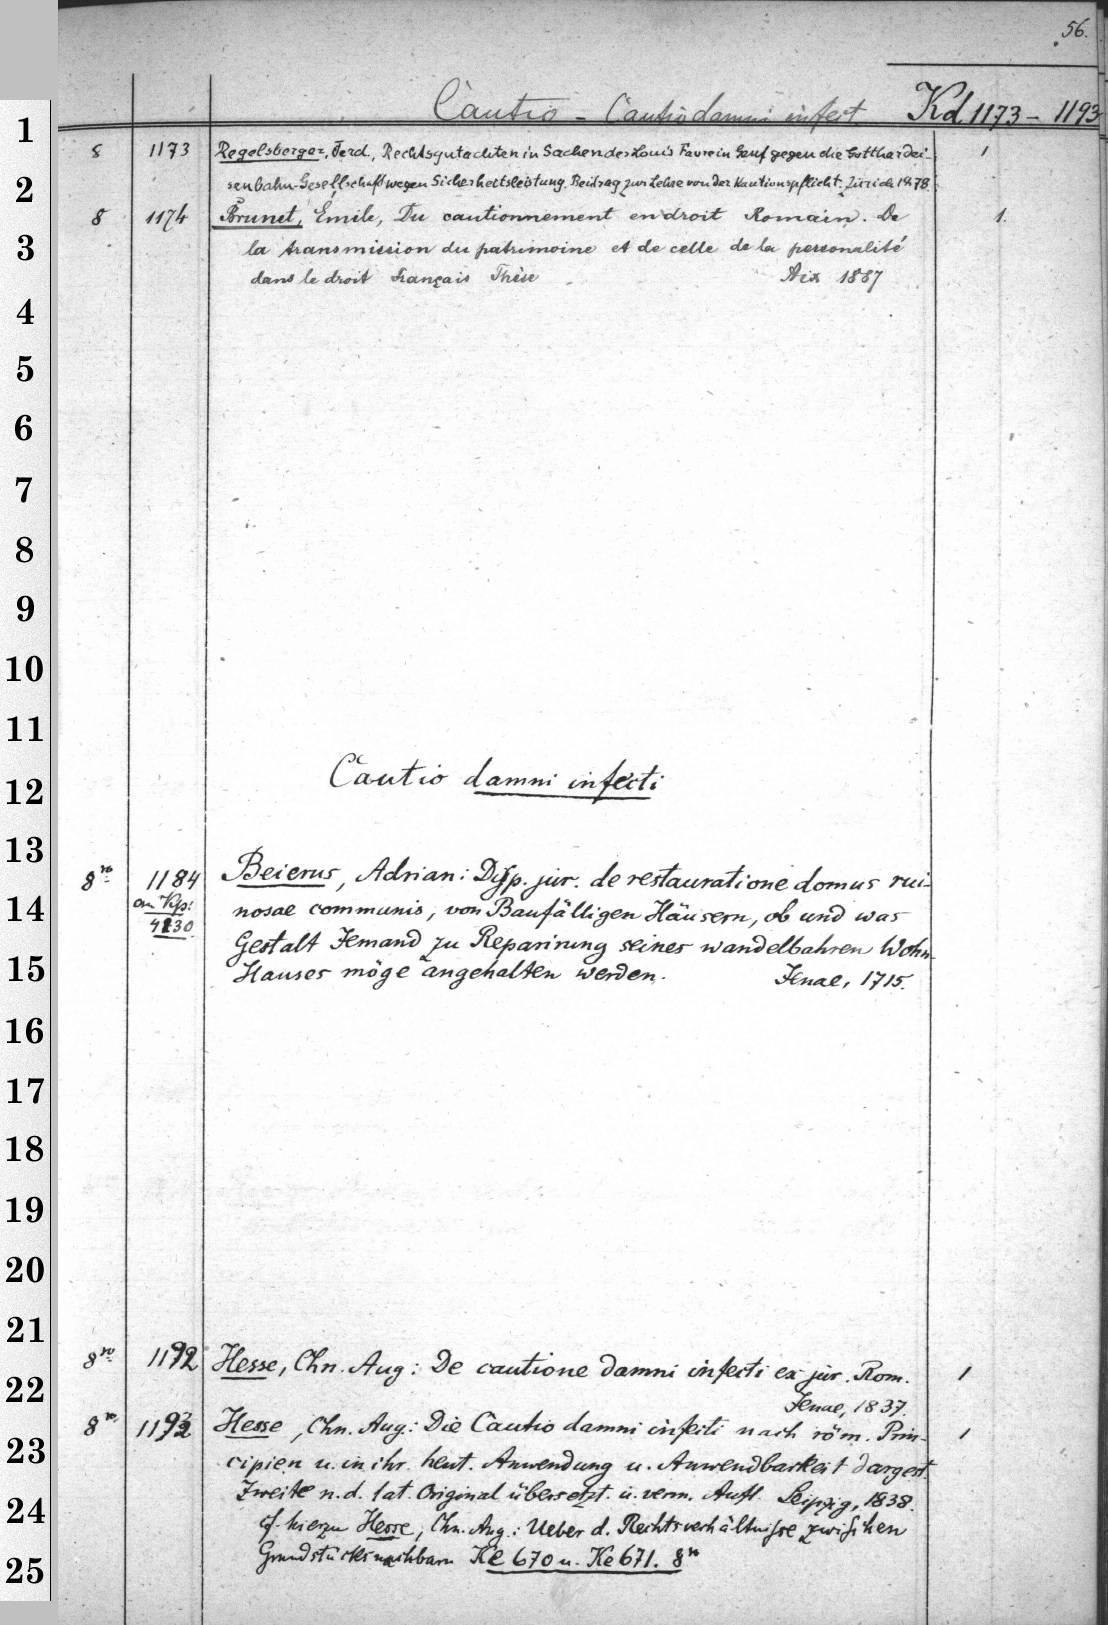 56.
Cautio - Cautio damni infect. Kd 1173 - 1193
1
8 1173 Regelsberger, Ferd., Rechtsgutachten in Sachen des Louis Favre in Genf gegen die Gotthardei- 1
2
senbahn-Gesellschaft wegen Sicherheitsleistung. Beitrag zur Lehre von der Kautionspflicht. Zürich 1878
8 1174 Brunet, Émile, Du cautionnement en droit Romain. De 1.
3
la transmission du patrimoine et de celle de la personalité
dans le droit français Thèse Aix 1887
4
5
6
7
8
9
10
11
Cautio damni infecti
12
13
8ᵛᵒ 1184 Beierus, Adrian: Disp. jur. de restauratione domus rui-
14
nosae communis, von Baufälligen Häusern, ob und was
4230
Gestalt Jemand zu Reparirung seines wandelbahren Wohn-
15
Hauses möge angehalten werden. Jenae, 1715.
16
17
18
19
20
21
8ᵛᵒ 1192 Hesse, Chn. Aug: De cautione damni infecti ex jur. Rom. 1
22
Jenae, 1837.
8ᵛᵒ 1193 Hesse, Chn. Aug.: Die Cautio damni infecti nach röm. Prin- 1
23
cipien u. in ihr. heut. Anwendung u. Anwendbarkeit dargest.
Zweite n. d. lat. Original übersetzt. u. verm. Aufl. Leipzig, 1838.
24
cf. hierzu Hesse, Chn. Aug.: Ueber d. Rechtsverhältnisse zwischen
Grundstücksnachbarn Ke 670 u. Ke 671. 8ᵛᵒ
25